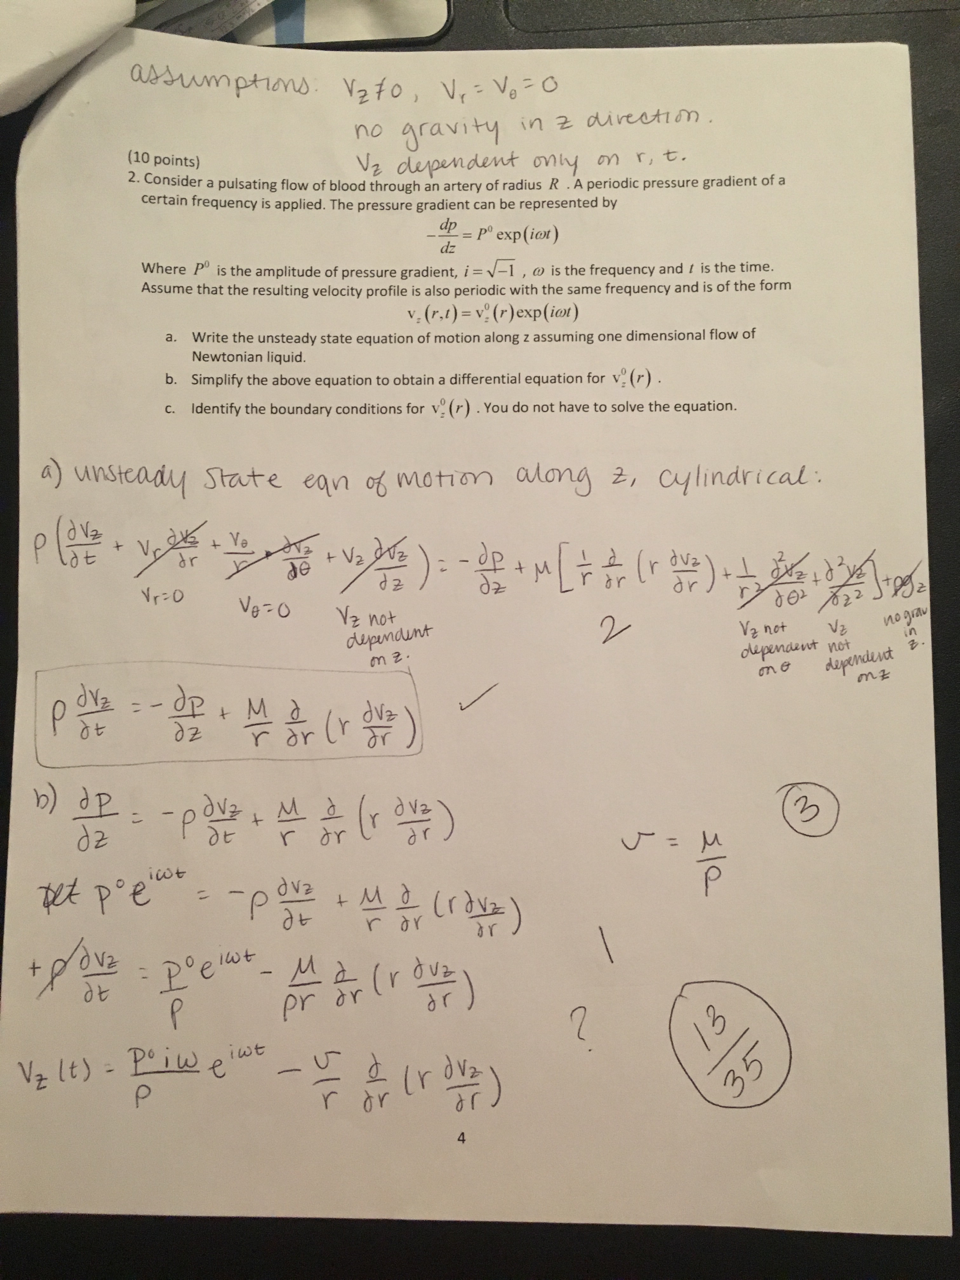 assumptions: V_z ≠ 0, V_r = V_θ = 0
no gravity in z direction.
V_z dependent only on r, t.
(10 points)
2. Consider a pulsating flow of blood through an artery of radius R . A periodic pressure gradient of a
certain frequency is applied. The pressure gradient can be represented by
-dp/dz = P⁰ exp(iωt)
Where P⁰ is the amplitude of pressure gradient, i = √-1 , ω is the frequency and t is the time.
Assume that the resulting velocity profile is also periodic with the same frequency and is of the form
v_z(r,t) = v_z⁰(r)exp(iωt)
a. Write the unsteady state equation of motion along z assuming one dimensional flow of
Newtonian liquid.
b. Simplify the above equation to obtain a differential equation for v_z⁰(r) .
c. Identify the boundary conditions for v_z⁰(r) . You do not have to solve the equation.
a) unsteady state eqn of motion along z, cylindrical:
ρ(∂V_z/∂t + V_r ∂V_z/∂r + V_θ/r · ∂V_z/∂θ + V_z ∂V_z/∂z) = -∂p/∂z + μ[1/r ∂/∂r (r ∂V_z/∂r) + 1/r² ∂²V_z/∂θ² + ∂²V_z/∂z²] + ρg_z
V_r = 0
V_θ = 0
V_z not
dependent
on z.
2
V_z not
dependent
on θ
V_z
not
dependent
on z
no grav
in
z.
ρ ∂V_z/∂t = -∂p/∂z + μ/r ∂/∂r (r ∂V_z/∂r) ✓
b) ∂p/∂z = -ρ ∂V_z/∂t + μ/r ∂/∂r (r ∂V_z/∂r)
3
ν = μ/ρ
P⁰e^iωt = -ρ ∂V_z/∂t + μ/r ∂/∂r (r ∂V_z/∂r)
1
+ρ ∂V_z/∂t = P⁰/ρ e^iωt - μ/ρr ∂/∂r (r ∂V_z/∂r)
?
13/35
V_z(t) = P⁰iω/ρ e^iωt - ν/r ∂/∂r (r ∂V_z/∂r)
4